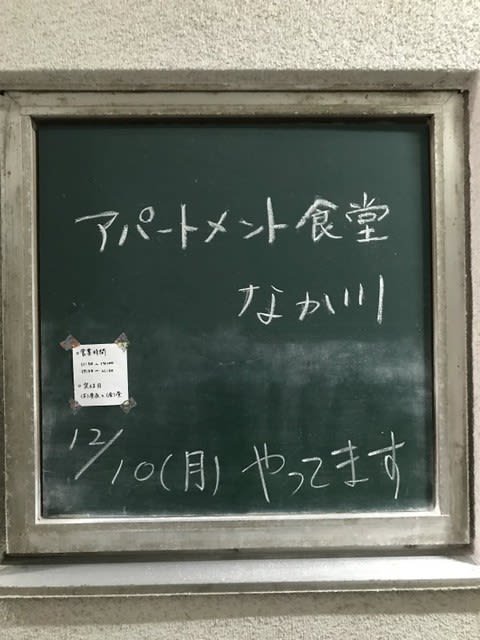 アパートメント食堂
なか川
・営業時間
12/10(月) やってます